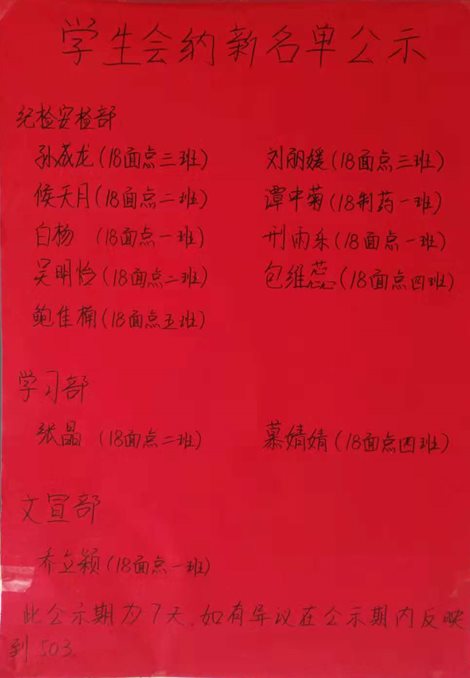 学生会纳新名单公示
纪检安检部
孙成龙(18面点三班) 刘丽媛(18面点三班)
侯天月(18面点二班) 潭中菊(18制药一班)
白杨 (18面点一班) 刑雨乐(18面点一班)
吴明怡(18面点二班) 包维蕊(18面点四班)
鲍佳楠(18面点五班)
学习部
张晶 (18面点二班) 慕婧婧(18面点四班)
文宣部
乔立颖(18面点一班)
此公示期为7天,如有异议在公示期内反映
到503.